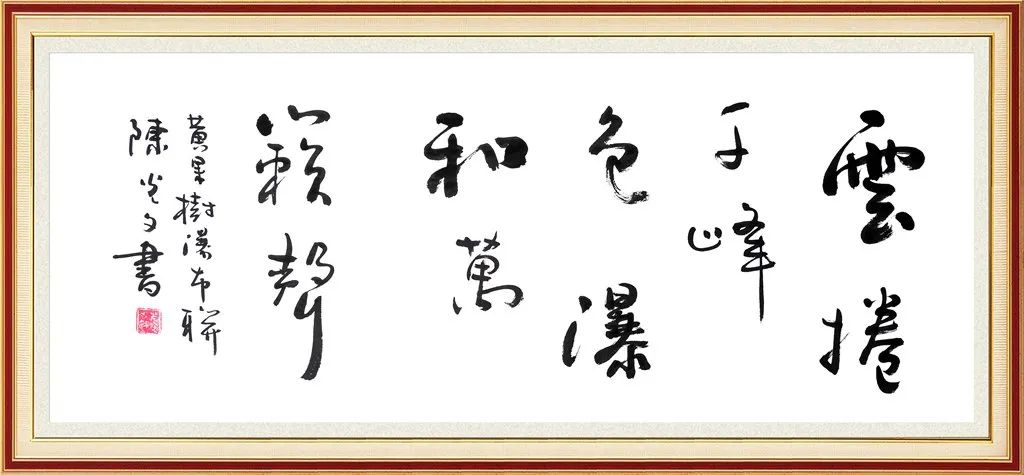 雲捲
千峰
色瀑
和萬
籟聲
黃果樹瀑布聯
陳光文書